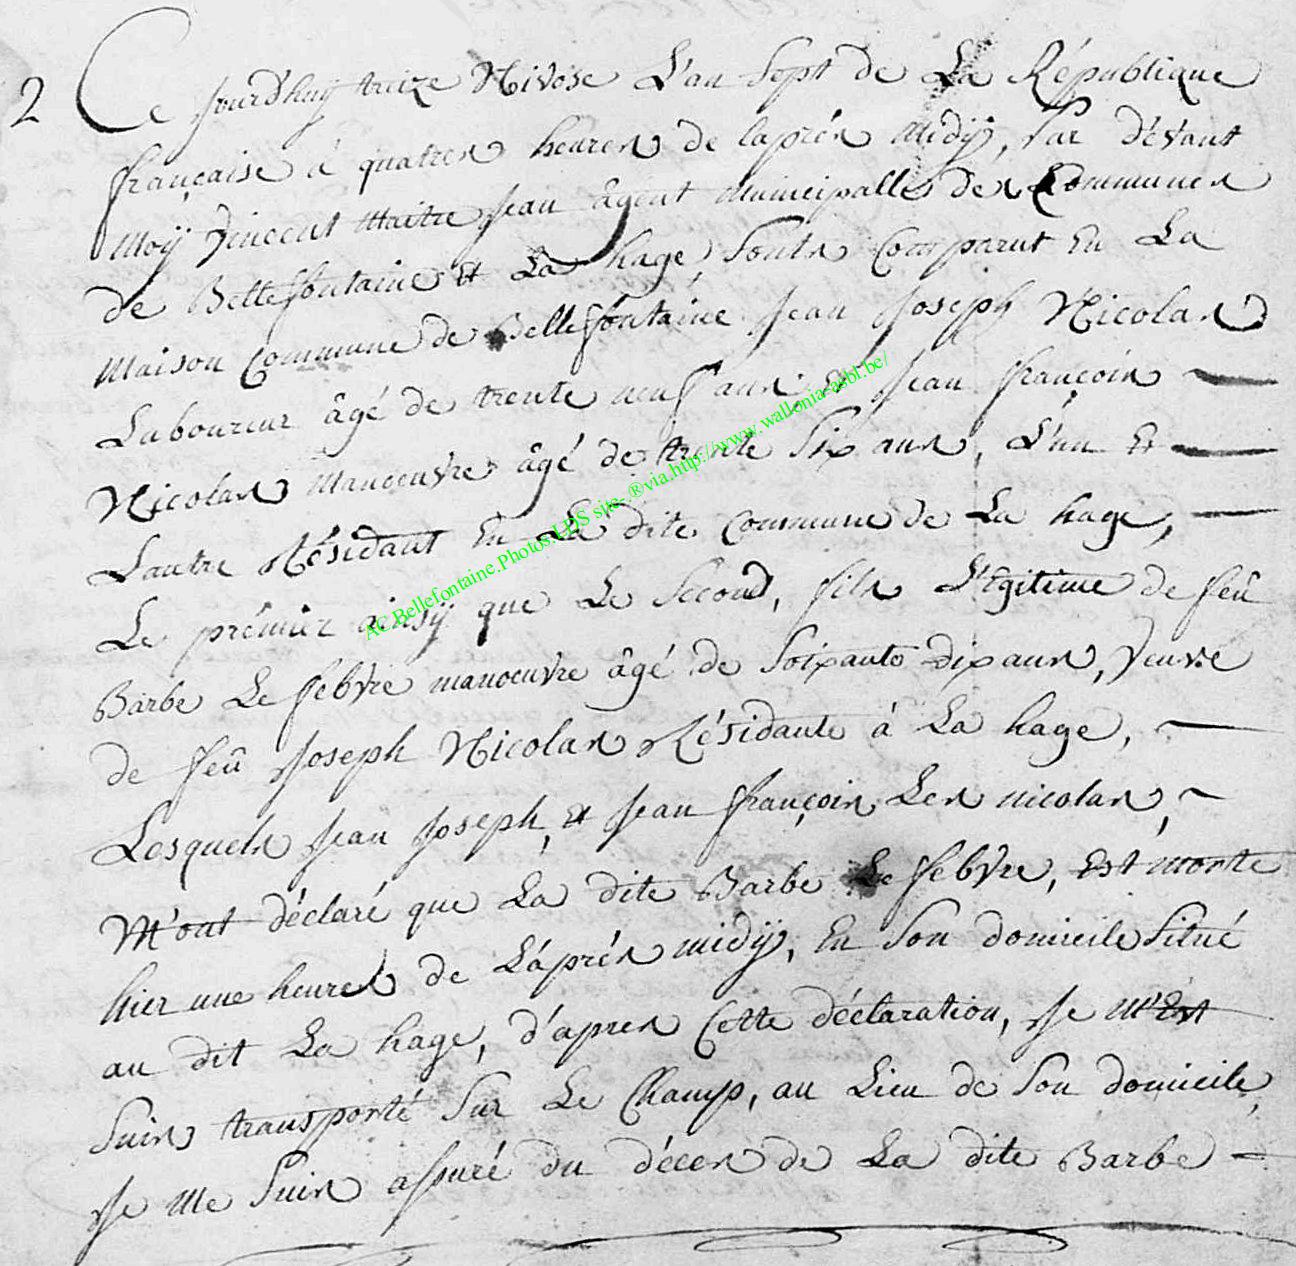 2 Ce jourdhuy treize Nivose L'an Sept de La République
française à quatres heures de laprés Midÿ, Par dévant
Moÿ Vincent Maitre Jean âgent Municipalle des Communes
de Bellefontaine Et La hage, Sonts Comparut En La
Maison Commune de Bellefontaine Jean Joseph Nicolas
Laboureur âgé de trente neuf ans, Et Jean françois
Nicolas Manoeuvre âgé de trente Six ans, L'un Et
Lautre Résidant En La dite Commune de La hage,
Le prémier ainsÿ que Le Second, fils L'Egitime de feû
Barbe Le febvre manoeuvre âgé de Soixante dix ans, Veuve
de feû Joseph Nicolas Résidante à La hage,
Lesquels Jean Joseph, et Jean françois Les nicolas,
M'ont déclaré que La dite Barbe Le febvre, Est morte
hier une heures de L'áprés midÿ, En Son domicile Situé
au dit La hage, d'apres Cette déclaration, Je M'Est
Suis transporté Sur Le Champ, au Lieu de Son domicile,
Je Me Suis assuré du déces de La dite Barbe
AC.Bellefontaine.Photos.LDS site-.®via.http://www.wallonia-asbl.be/